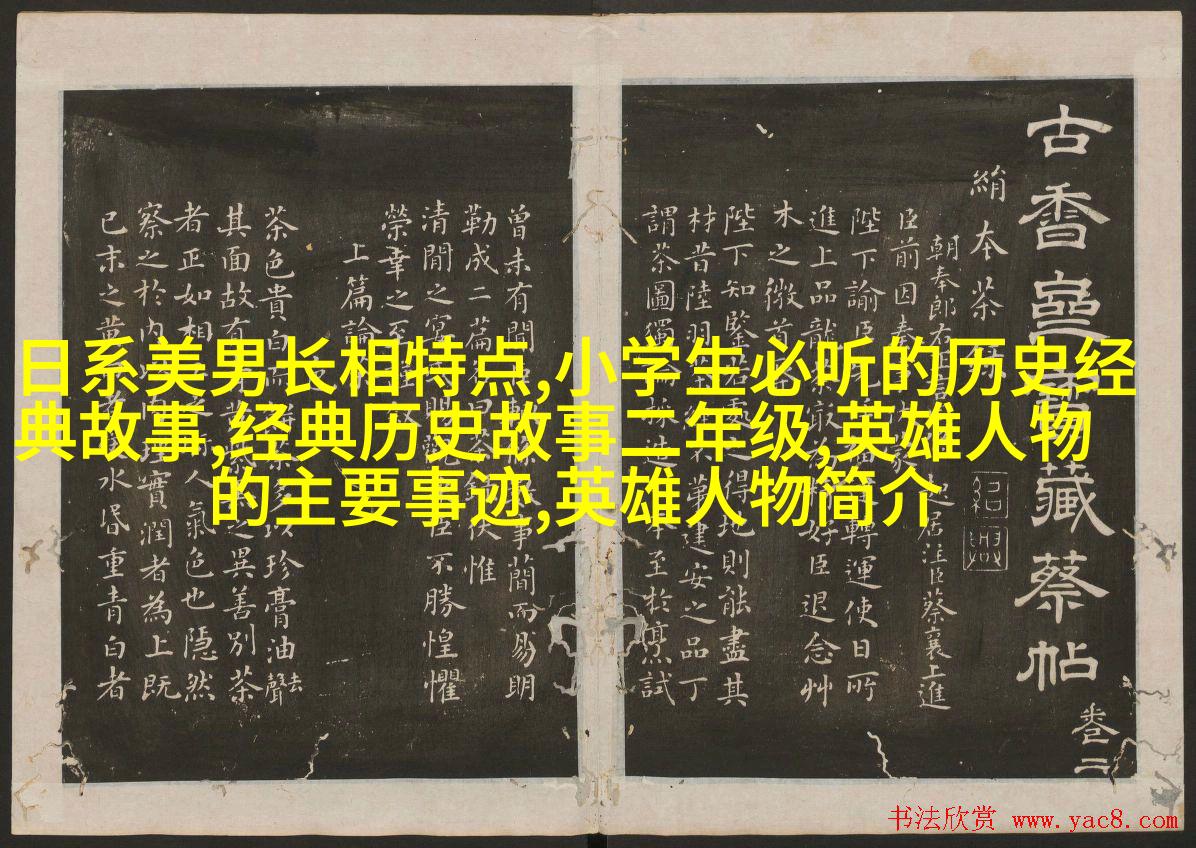 日系美男长相特点,小学生必听的历史经
典故事,经典历史故事二年级,英雄人物
的主要事迹,英雄人物简介
古香齋寶藏蔡帖
卷二
絹本茶
紹興
朝奉郎右正言起居注臣蔡襄上進
臣前因奏
陛下諭臣福轉運使日所
進上品龍最好臣退念艸
木之微首
陛下知鑒處之得地則能盡其
材昔陸羽不第建安之品丁
謂茶圖獨論採造之本至於烹試
曾未有聞臣輒條事簡而易明
勒成二篇名曰茶錄伏惟
清閒之宴賜觀臣不勝惶懼
榮幸之至
上篇論茶
茶色貴白而餅茶多以珍膏油去聲
其面故有青之異善別茶
者正如相人氣色也隱然
察之於內肉理實潤者為上既
已末之黃者水昏重青白者
书法欣赏 www.yac8.com